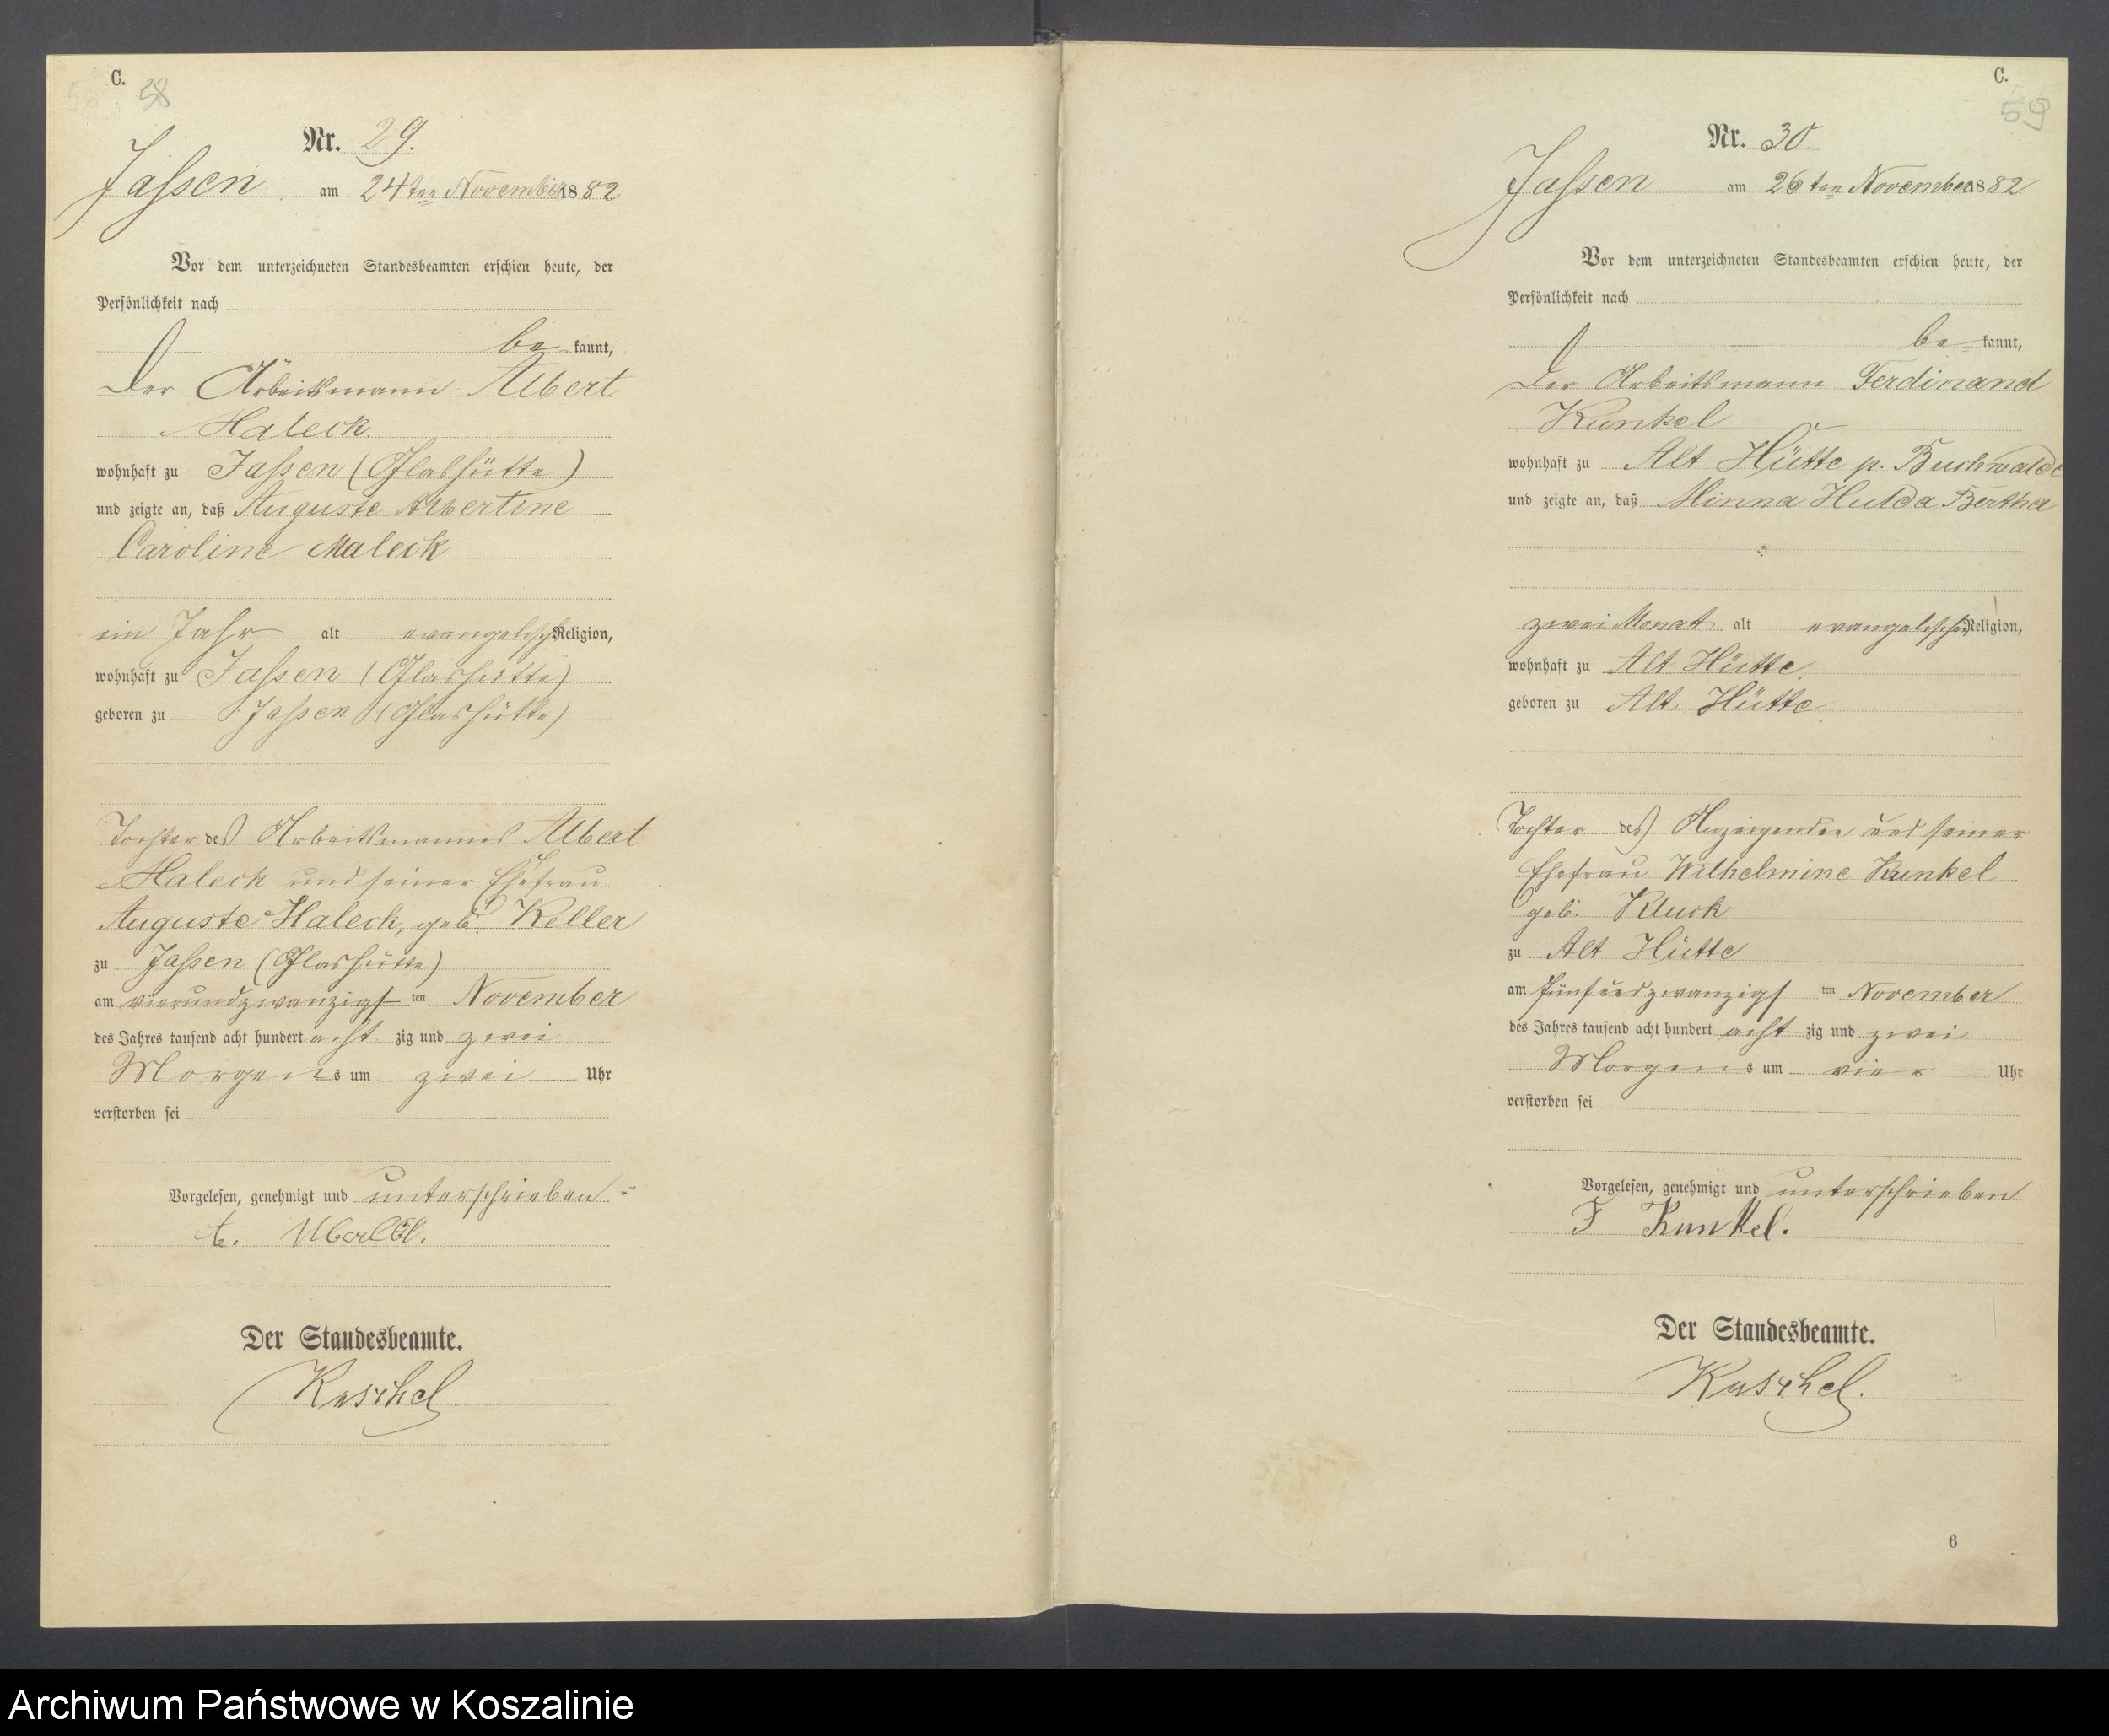 C.
58
Nr. 29.
Jassen am 24ten November 1882
Vor dem unterzeichneten Standesbeamten erschien heute, der
Persönlichkeit nach
be kannt,
Der Arbeitsmann Albert
Maleck
wohnhaft zu Jassen (Glashütte)
und zeigte an, daß Auguste Albertine
Caroline Maleck
ein Jahr alt evangelisch Religion,
wohnhaft zu Jassen (Glashütte)
geboren zu Jassen (Glashütte)
Tochter des Arbeitsmannes Albert
Maleck und seiner Ehefrau
Auguste Maleck, geb. Keller
zu Jassen (Glashütte)
am vierundzwanzigst ten November
des Jahres tausend acht hundert acht zig und zwei
Morgens um zwei Uhr
verstorben sei
Vorgelesen, genehmigt und unterschrieben
Der Standesbeamte.
Kuschel
C.
59
Nr. 30.
Jassen am 26ten November 1882
Vor dem unterzeichneten Standesbeamten erschien heute, der
Persönlichkeit nach
be kannt,
Der Arbeitsmann Ferdinand
Kunkel
wohnhaft zu Alt Hütte p. Buchwalde
und zeigte an, daß Minna Hulda Bertha
zwei Monat alt evangelischer Religion,
wohnhaft zu Alt Hütte
geboren zu Alt Hütte
Tochter des Anzeigenden und seiner
Ehefrau Wilhelmine Kunkel
geb. Kluck
zu Alt Hütte
am fünfundzwanzigst ten November
des Jahres tausend acht hundert acht zig und zwei
Morgens um vier Uhr
verstorben sei
Vorgelesen, genehmigt und unterschrieben
F Kunkel.
Der Standesbeamte.
Kuschel.
6
Archiwum Państwowe w Koszalinie